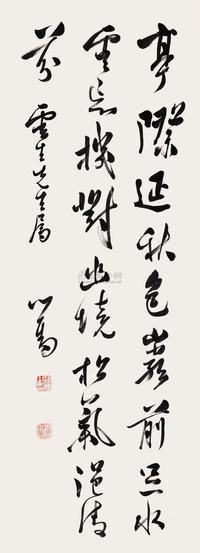 亭際延秋色巖前水
雲忘機對幽境松氣浥清
芬 雲生先生屬 心畬